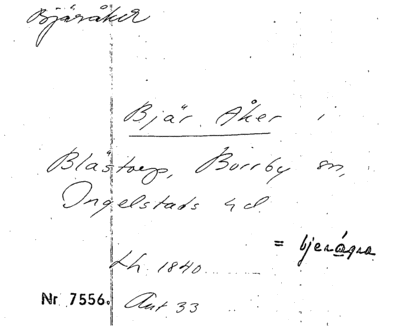 Bjäråker
Bjär Åker i
Blästorp, Borrby sn,
Ingelstads hd
= bjerågra
Lh. 1840
Nr 7556. Ant 33